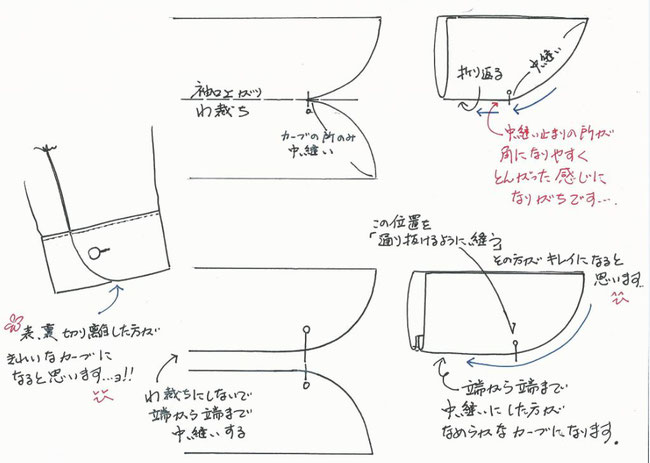 袖口と切り
わ裁ち
a
カーブの所のみ
中縫い
折り返る
中縫い
中縫い止まりの所が
角になりやすく
とんがった感じに
なりがちです…
この位置を
「通り抜けるように縫う」
その方がキレイになると
思います…
表、裏 切り離した方が
きれいなカーブに
なると思います…ョ!!
わ裁ちにしないで
端から端まで
中縫いする
端から端まで
中縫いにした方が
なめらかなカーブになります。